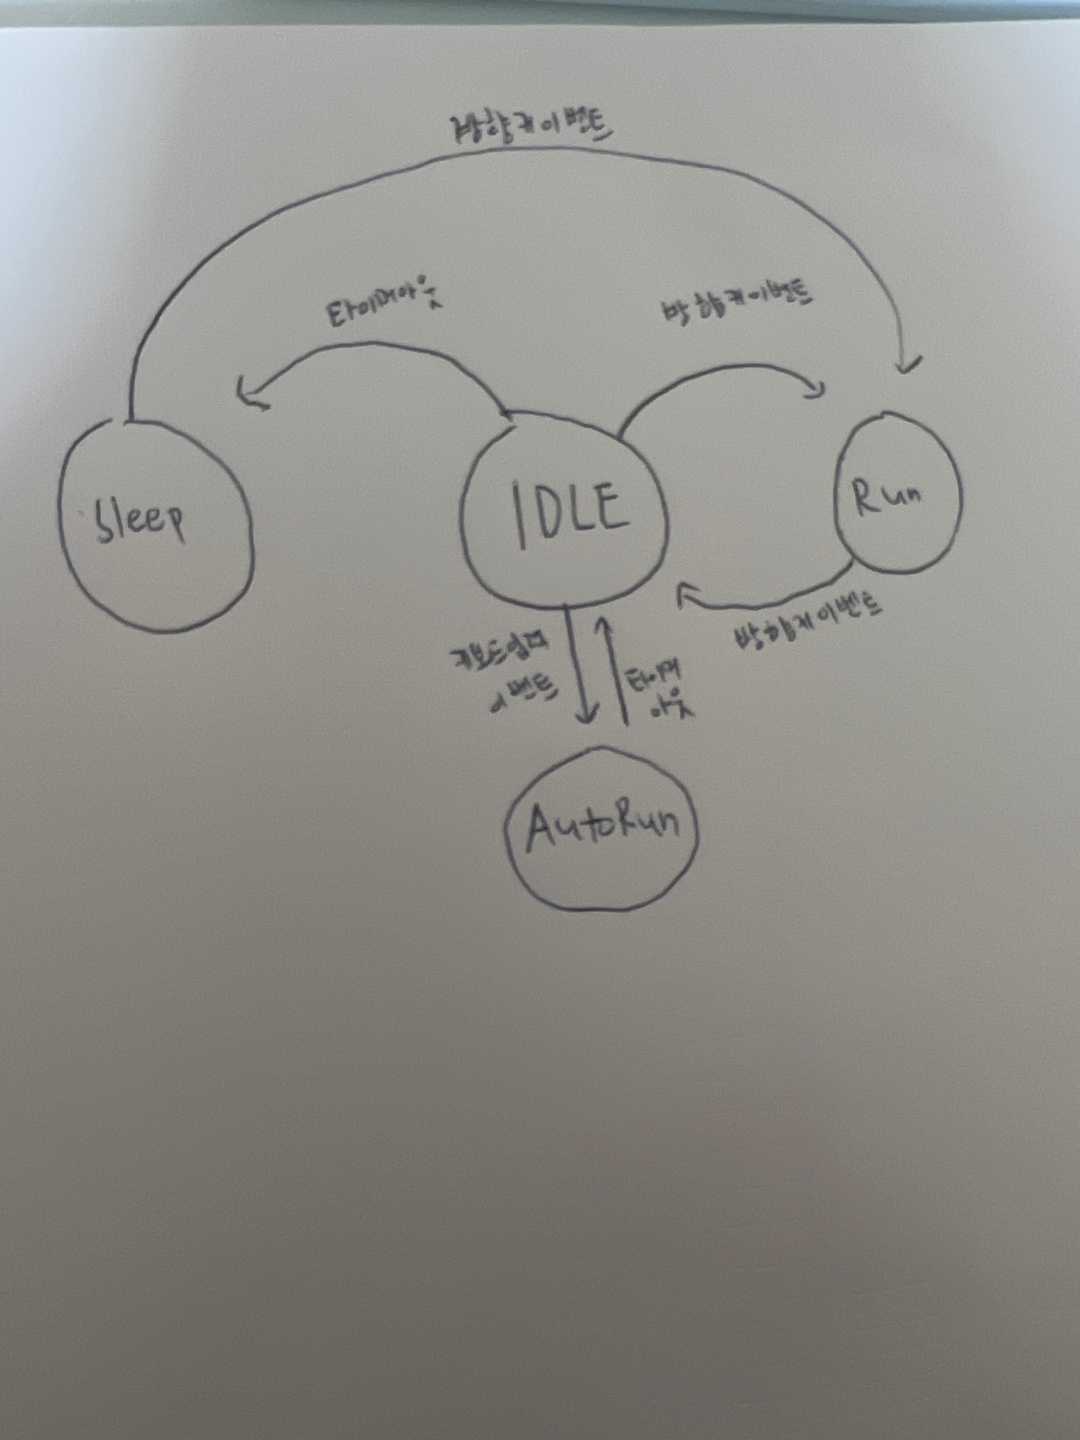 방향키이벤트
타이머아웃
방향키이벤트
Sleep
IDLE
Run
방향키이벤트
키보드입력
이벤트
타이머
아웃
AutoRun